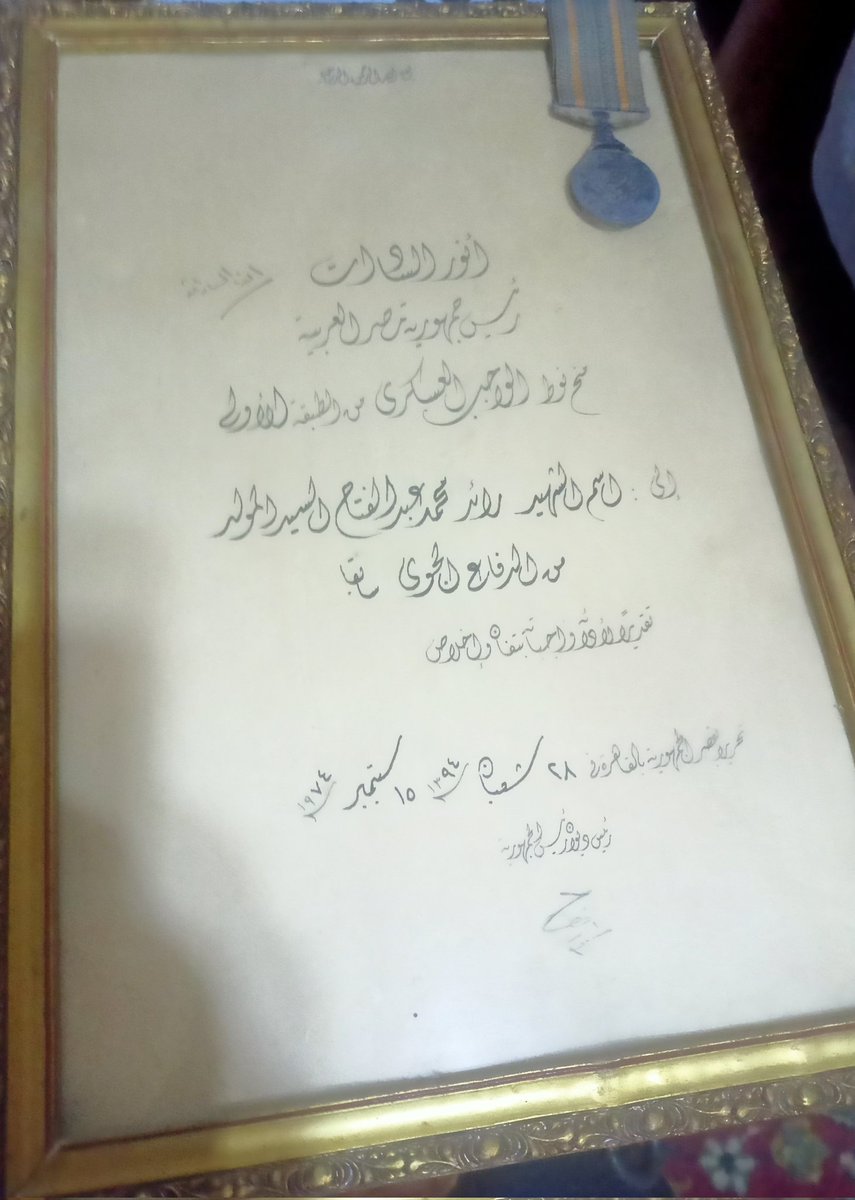 بسم الله الرحمن الرحيم
أنور السادات
رئيس جمهورية مصر العربية
منح نوط الواجب العسكرى من الطبقة الأولى
إلى : اسم الشهيد رائد محمد عبد الفتاح السيد المولد
من الدفاع الجوى سابقا
تقديرًا لأدائه واجباته بتفان وإخلاص
تحريرا بقصر الجمهورية بالقاهرة فى ٢٨ شعبان ١٣٩٤ ١٥ سبتمبر ١٩٧٤
رئيس ديوان رئيس الجمهورية